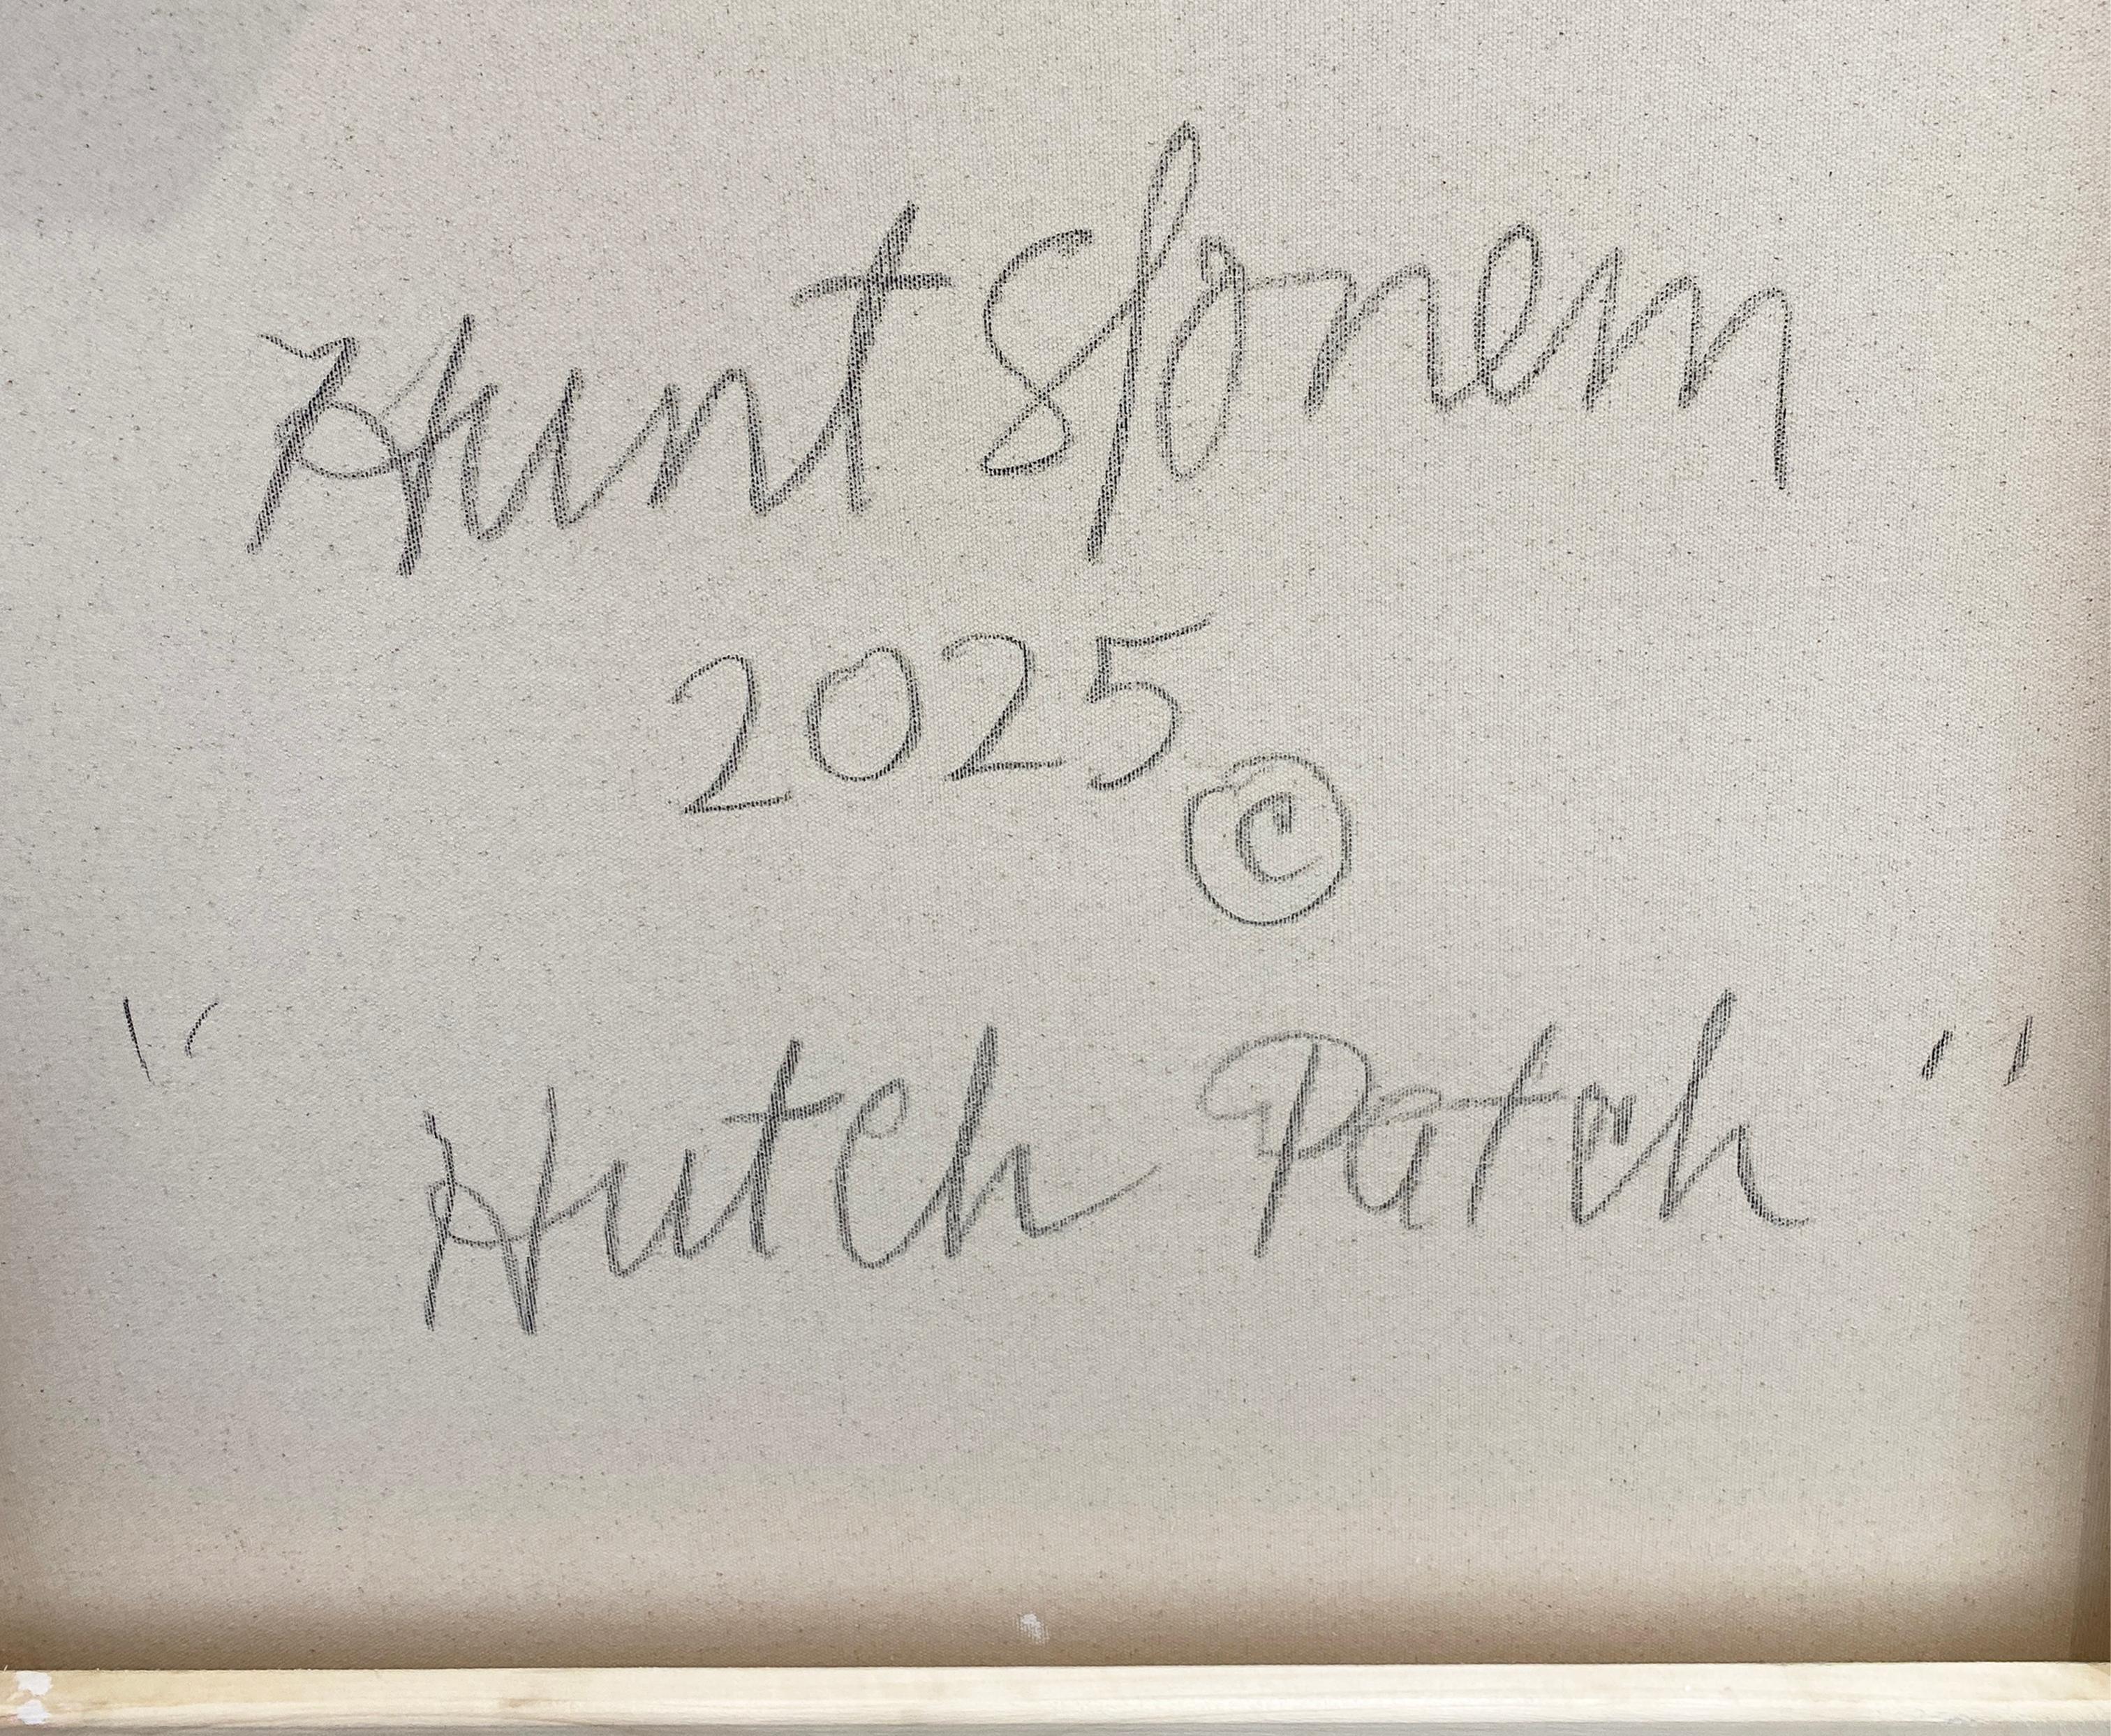 Hunt Slonem
2025 ©
"Hutch Patch"